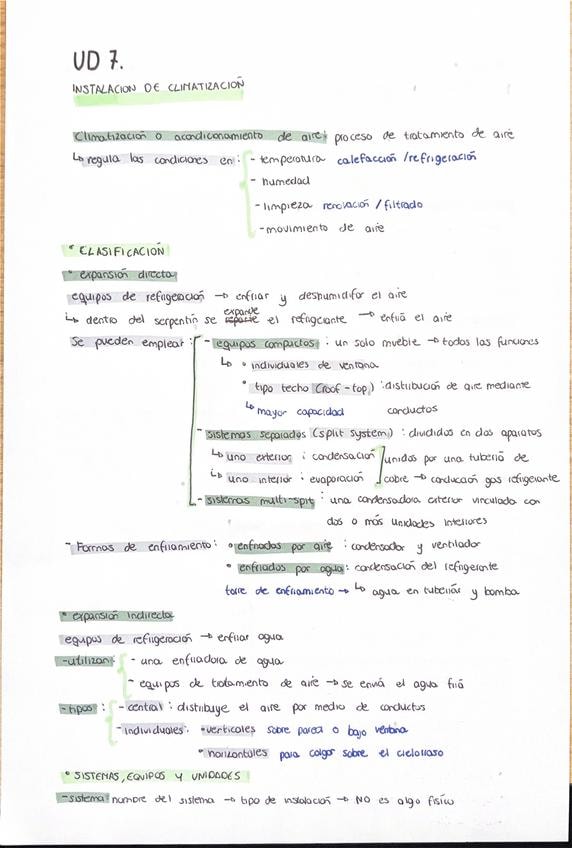 UD 7.
INSTALACION DE CLIMATIZACIÓN
Climatización o acondicionamiento de aire: proceso de tratamiento de aire
↳ regula las condiciones en: - temperatura calefacción / refrigeración
- humedad
- limpieza renovación / filtrado
- movimiento de aire
* CLASIFICACIÓN
* expansión directa
equipos de refrigeración → enfriar y deshumidifor el aire
↳ dentro del serpentín se expande el refrigerante → enfría el aire
Se pueden emplear: - equipos compactos: un solo mueble → todas las funciones
↳ • individuales de ventana
• tipo techo (roof-top): distribución de aire mediante
↳ mayor capacidad conductos
- sistemas separados (split system): divididos en dos aparatos
↳ uno exterior: condensación unidos por una tubería de
↳ uno interior: evaporación cobre → conducción gas refrigerante
- sistemas multi-split: una condensadora exterior vinculada con
dos o más unidades interiores
- Formas de enfriamiento: • enfriados por aire: condensador y ventilador
• enfriados por agua: condensación del refrigerante
torre de enfriamiento → ↳ agua en tuberías y bomba
* expansión indirecta
equipos de refrigeración → enfriar agua
- utilizan: - una enfriadora de agua
- equipos de tratamiento de aire → se envía el agua fría
- tipos: - central: distribuye el aire por medio de conductos
- individuales: • verticales sobre pared o bajo ventana
• horizontales para colgar sobre el cielorraso
* SISTEMAS, EQUIPOS Y UNIDADES
- sistema nombre del sistema → tipo de instalación → NO es algo físico